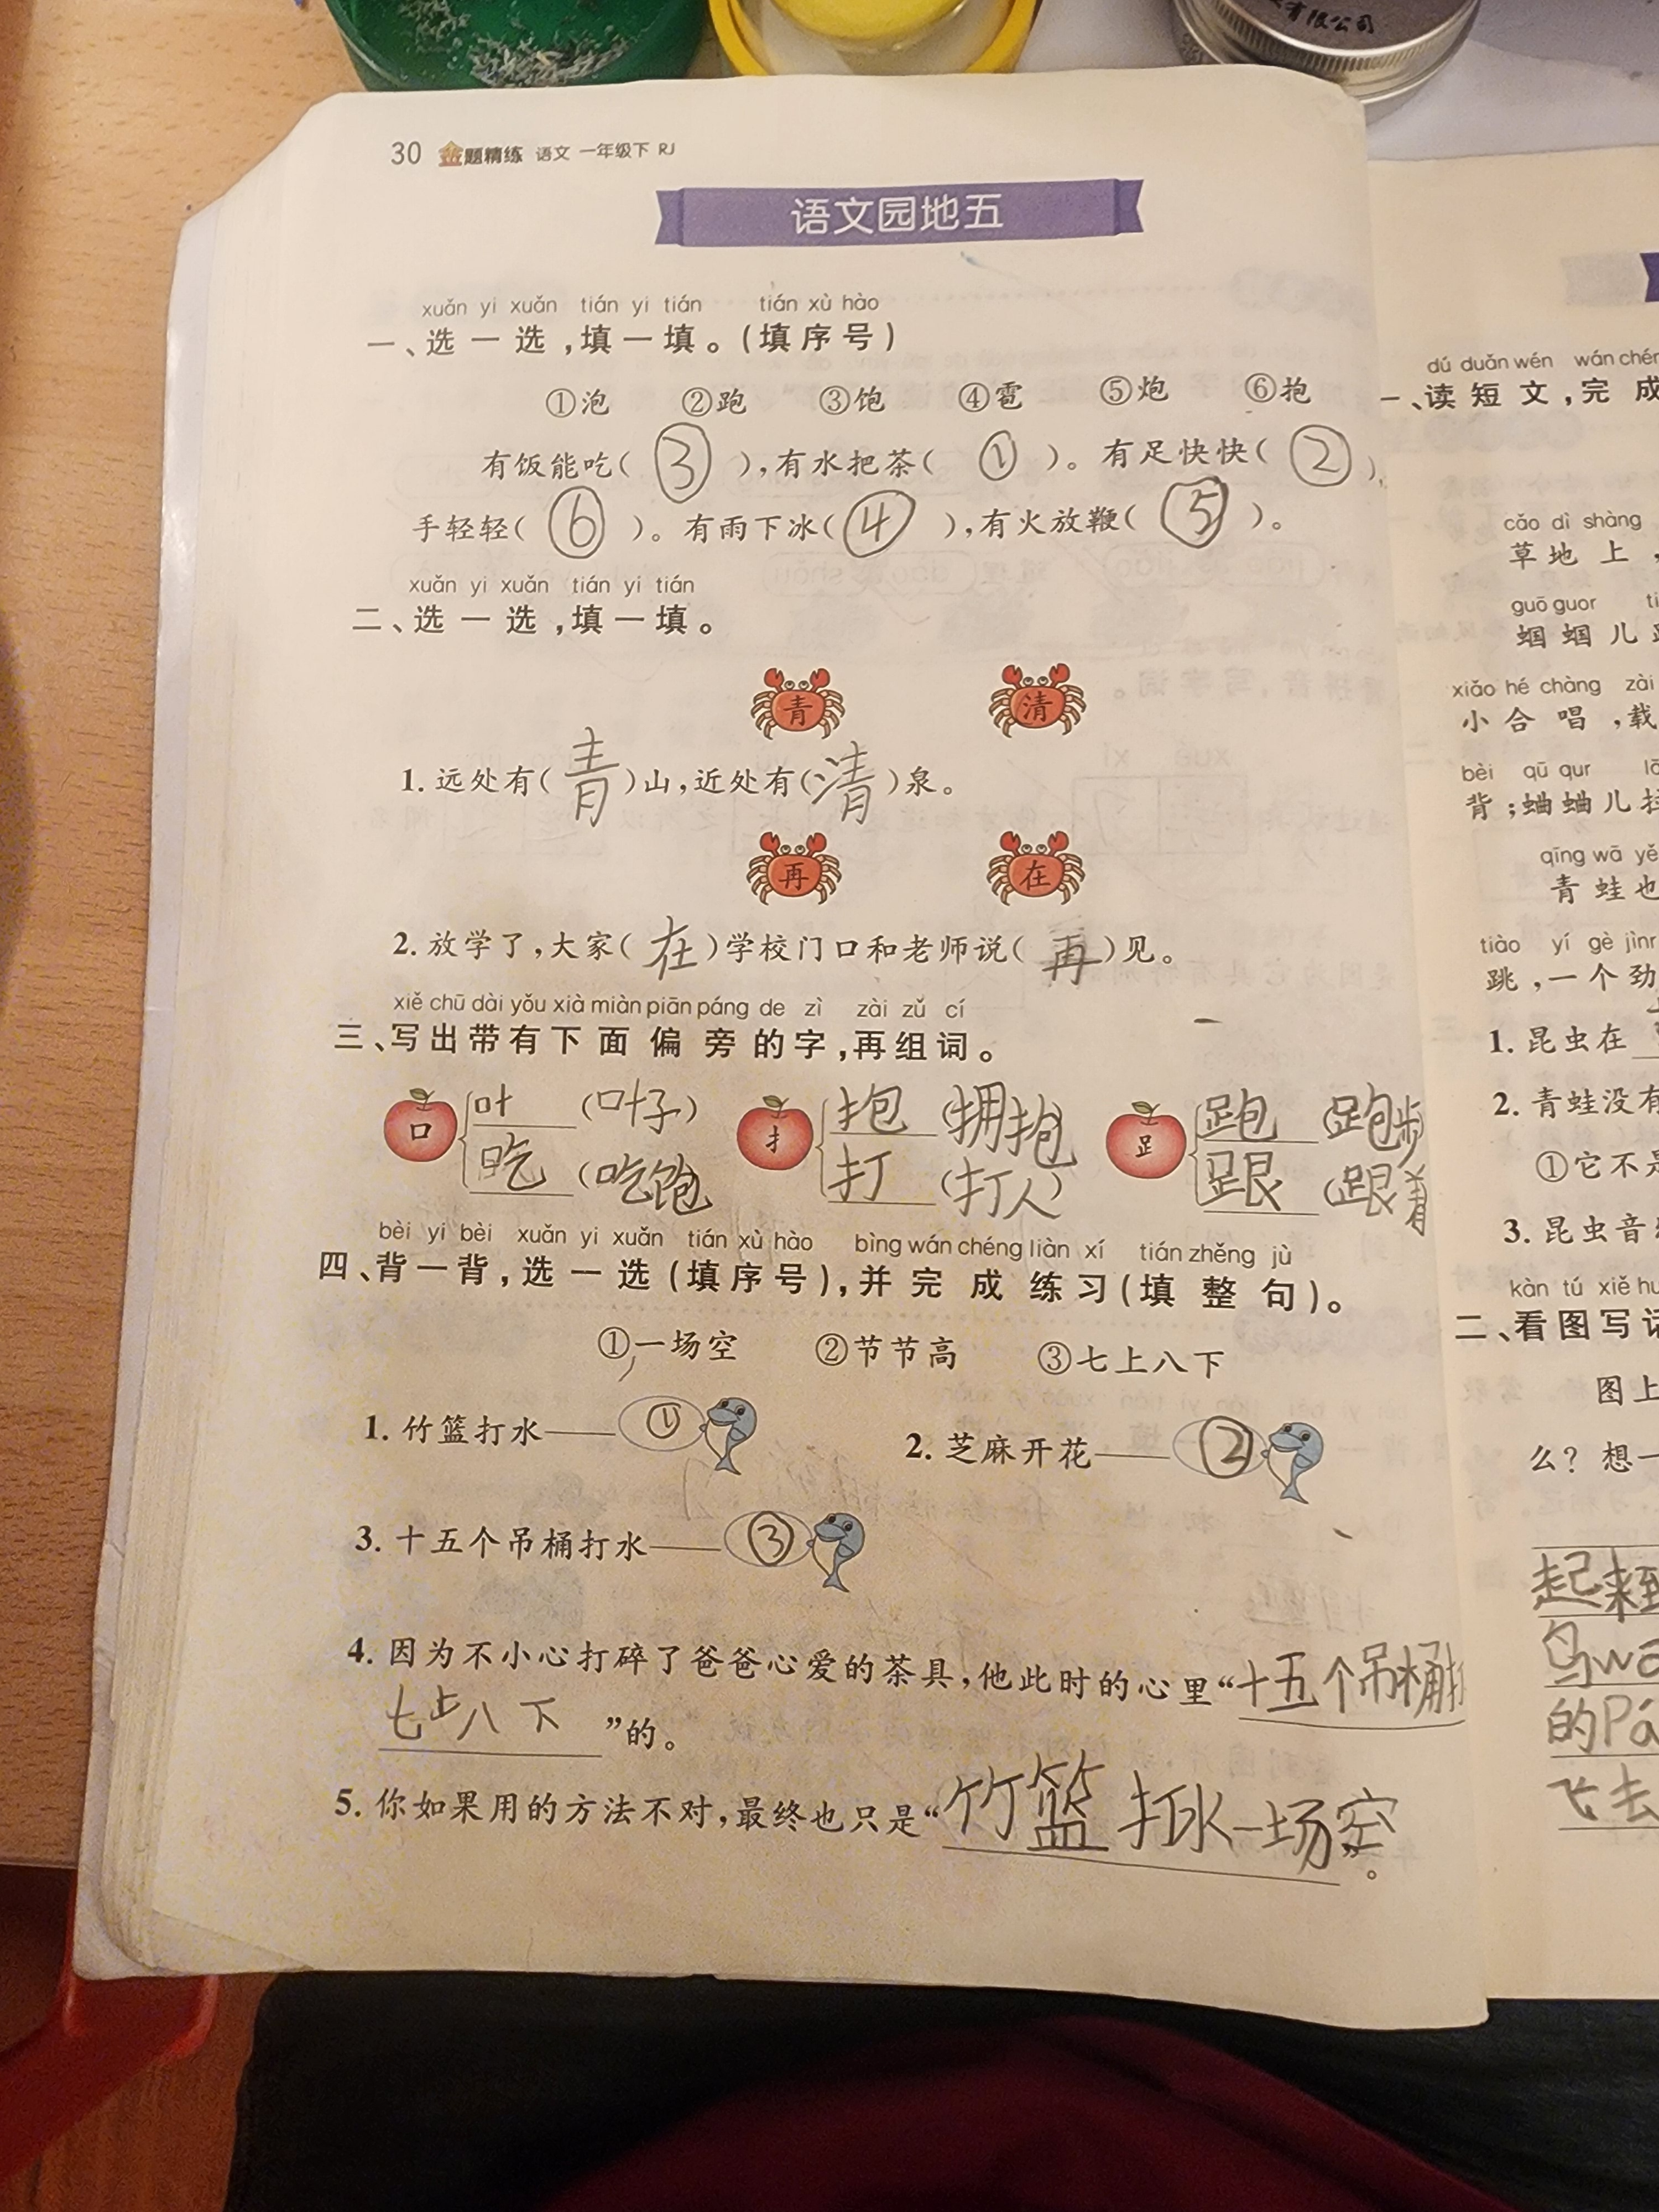 有限公司
30 金题精练 语文 一年级下 RJ
语文园地五
xuǎn yi xuǎn tián yi tián tián xù hào
一、选一选,填一填。(填序号)
①泡 ②跑 ③饱 ④雹 ⑤炮 ⑥抱
有饭能吃( ③ ),有水把茶( ① )。有足快快( ② ),
手轻轻( ⑥ )。有雨下冰( ④ ),有火放鞭( ⑤ )。
xuǎn yi xuǎn tián yi tián
二、选一选,填一填。
青 清
1. 远处有( 青 )山,近处有( 清 )泉。
再 在
2. 放学了,大家( 在 )学校门口和老师说( 再 )见。
xiě chū dài yǒu xià miàn piān páng de zì zài zǔ cí
三、写出带有下面偏旁的字,再组词。
口 叶 (叶子) 扌 抱 (拥抱) 𧾷 跑 (跑步)
吃 (吃饱) 打 (打人) 跟 (跟着
bèi yi bèi xuǎn yi xuǎn tián xù hào bìng wán chéng liàn xí tián zhěng jù
四、背一背,选一选(填序号),并完成练习(填整句)。
①一场空 ②节节高 ③七上八下
1. 竹篮打水—— ①
2. 芝麻开花—— ②
3. 十五个吊桶打水—— ③
4. 因为不小心打碎了爸爸心爱的茶具,他此时的心里“十五个吊桶打
七上八下”的。
5. 你如果用的方法不对,最终也只是“竹篮打水一场空”。
dú duǎn wén wán chéng
一、读短文,完成
cǎo dì shàng
草地上,
guō guor
蝈蝈儿
xiǎo hé chàng zài
小合唱,载
bèi qū qur
背;蛐蛐儿
qīng wā yě
青蛙也
tiào yí gè jìnr
跳,一个劲
1. 昆虫在
2. 青蛙没有
①它不是
3. 昆虫音
kàn tú xiě huà
二、看图写话
图上
么?想一
起来到
鸟wō
的Pá
飞去